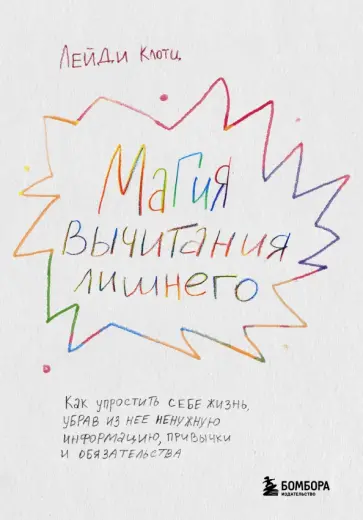 Лейди Клотц
Магия
вычитания
лишнего
Как упростить себе жизнь,
убрав из нее ненужную
информацию, привычки
и обязательства
БОМБОРА
ИЗДАТЕЛЬСТВО